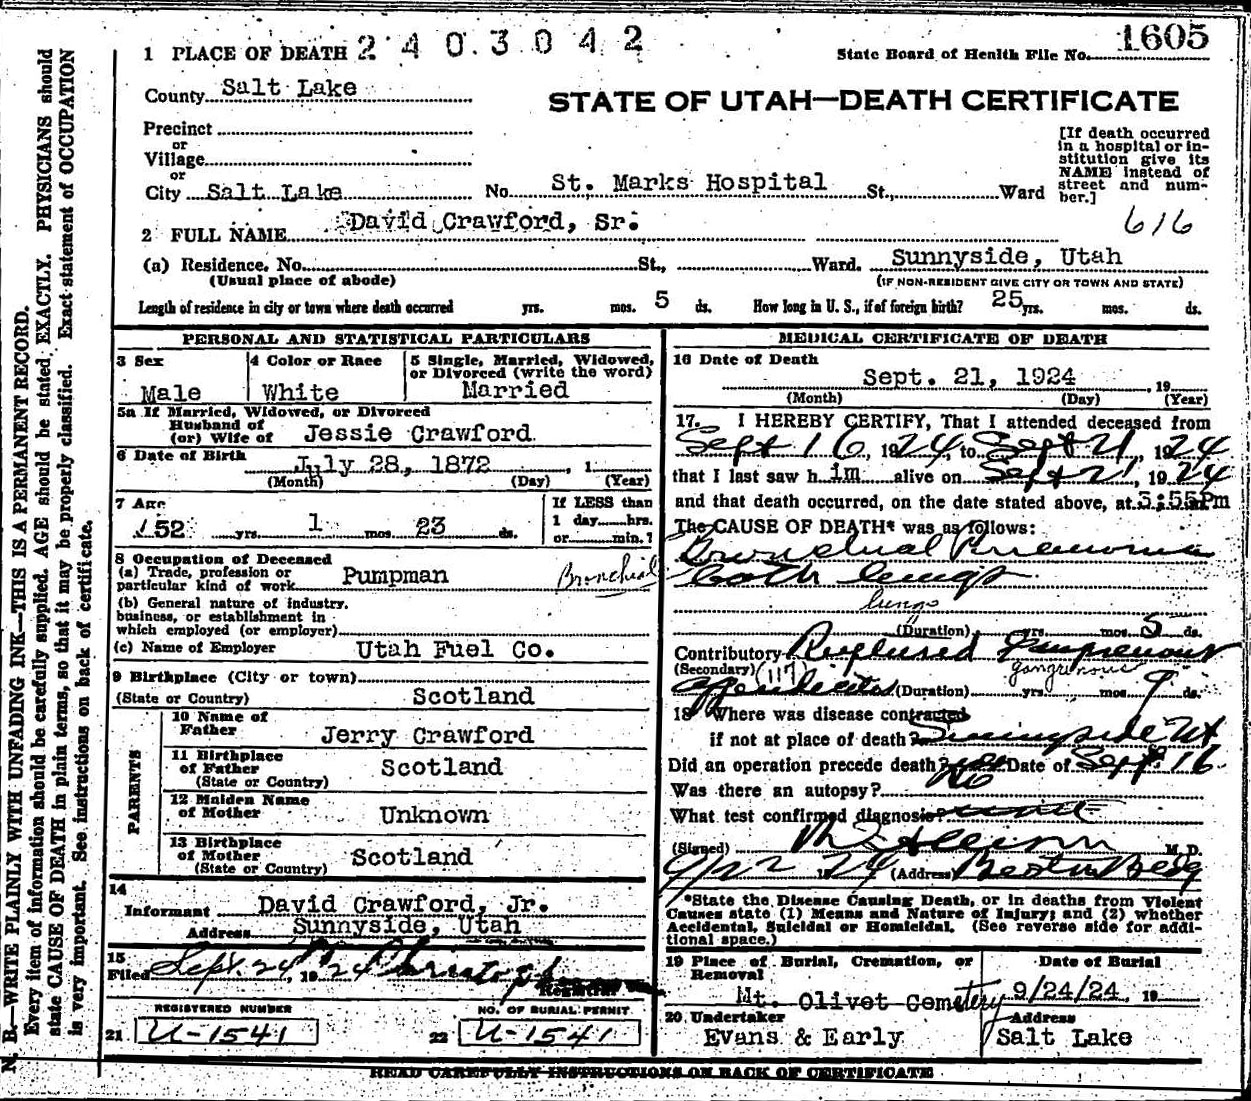 1 PLACE OF DEATH 2403042
State Board of Health File No. 1605
County Salt Lake
STATE OF UTAH—DEATH CERTIFICATE
Precinct
or
Village
or
City Salt Lake No. St. Marks Hospital St., Ward
[If death occurred
in a hospital or in-
stitution give its
NAME instead of
street and num-
ber.]
616
2 FULL NAME David Crawford, Sr.
(a) Residence. No. St., Ward. Sunnyside, Utah
(Usual place of abode) (IF NON-RESIDENT GIVE CITY OR TOWN AND STATE)
Length of residence in city or town where death occurred yrs. mos. 5 ds. How long in U. S., if of foreign birth? 25 yrs. mos. ds.
PERSONAL AND STATISTICAL PARTICULARS
3 Sex
Male
4 Color or Race
White
5 Single, Married, Widowed,
or Divorced (write the word)
Married
5a If Married, Widowed, or Divorced
Husband of
(or) Wife of Jessie Crawford
6 Date of Birth July 28, 1872 , 1
(Month) (Day) (Year)
7 Age
52 yrs. 1 mos. 23 ds.
If LESS than
1 day hrs.
or min.?
8 Occupation of Deceased
(a) Trade, profession or
particular kind of work Pumpman
(b) General nature of industry.
business, or establishment in
which employed (or employer)
(c) Name of Employer Utah Fuel Co.
9 Birthplace (City or town)
(State or Country) Scotland
PARENTS
10 Name of
Father Jerry Crawford
11 Birthplace
of Father Scotland
(State or Country)
12 Maiden Name
of Mother Unknown
13 Birthplace
of Mother Scotland
(State or Country)
14
Informant David Crawford, Jr.
Address Sunnyside, Utah
15
Filed Sept. 24, 1924
Registrar
REGISTERED NUMBER
21 U-1541
NO. OF BURIAL PERMIT
22 U-1541
MEDICAL CERTIFICATE OF DEATH
16 Date of Death
Sept. 21, 1924 , 19
(Month) (Day) (Year)
17. I HEREBY CERTIFY, That I attended deceased from
Sept 16, 1924, to Sept 21, 1924
that I last saw him alive on Sept 21, 1924
and that death occurred, on the date stated above, at 3:55 Pm
The CAUSE OF DEATH* was as follows:
Bronchial Pneumonia
Bronchial
both lungs
lungs
(Duration) yrs. mos. 5 ds.
Contributory Ruptured Gangrenous
(Secondary) (117) gangrenous
appendicitis (Duration) yrs. mos. 9 ds.
18 Where was disease contracted
if not at place of death? Sunnyside Ut
Did an operation precede death? yes Date of Sept. 16
Was there an autopsy? No
What test confirmed diagnosis?
(Signed) M. D.
9/22 1924 (Address) Boston Bldg
*State the Disease Causing Death, or in deaths from Violent
Causes state (1) Means and Nature of Injury; and (2) whether
Accidental, Suicidal or Homicidal. (See reverse side for addi-
tional space.)
19 Place of Burial, Cremation, or
Removal
Mt. Olivet Cemetery
Date of Burial
9/24/24, 19
20 Undertaker
Evans & Early
Address
Salt Lake
READ CAREFULLY INSTRUCTIONS ON BACK OF CERTIFICATE
N. B.—WRITE PLAINLY WITH UNFADING INK—THIS IS A PERMANENT RECORD.
Every item of information should be carefully supplied. AGE should be stated EXACTLY. PHYSICIANS should
state CAUSE OF DEATH in plain terms, so that it may be properly classified. Exact statement of OCCUPATION
is very important. See instructions on back of certificate.